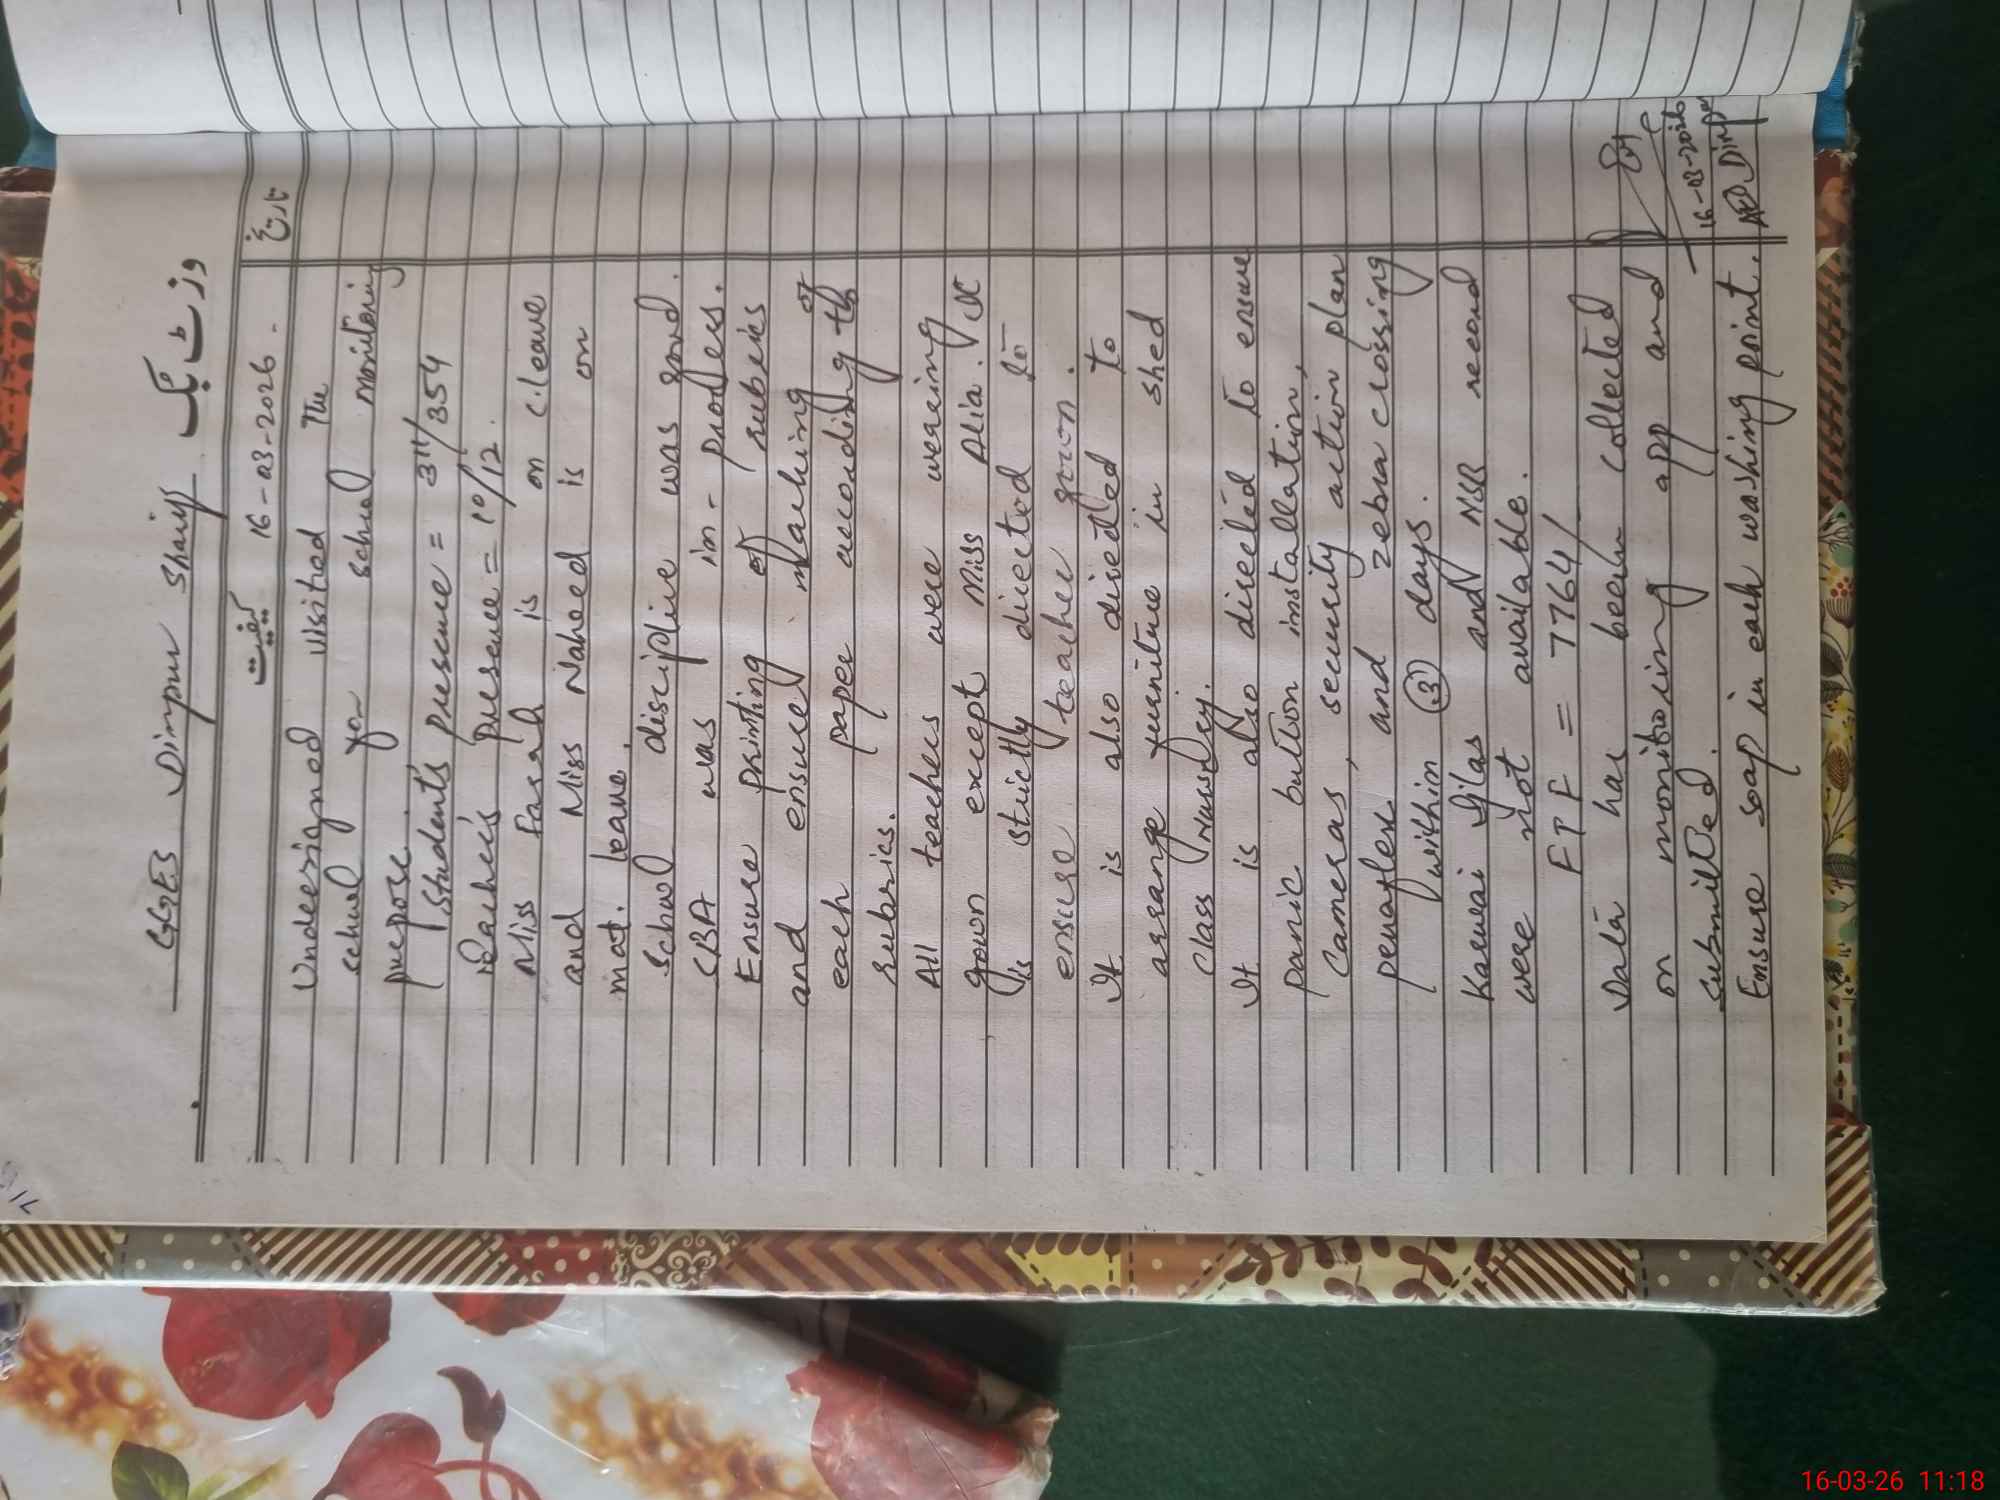 وزٹ بک
GGES Dinpur Sharif
کیفیت
16-03-2026.
تاریخ
Undersigned visited the
school for school monitoring
purpose.
Students presence = 311/354
Teachers presence = 10/12.
Miss Farah is on c.leave
and Miss Naheed is on
mat. leave.
School discipline was good.
SBA was in-progress.
Ensure printing of rubrics
and ensure marking of
each paper according to
rubrics.
All teachers were wearing
gown except Miss Alia. It
is strictly directed to
ensure teacher gown.
It is also directed to
arrange furniture in shed
class Nursery.
It is also directed to ensure
panic button installation,
Cameras, security action plan
penaflex, and zebra crossing
within (3) days.
Karwai Ijlas and NSB record
were not available.
FTF = 7764/
Data has been collected
on monitoring app and
submitted.
Ensure soap in each washing point.
16-03-2026
Dinpur
16-03-26 11:18